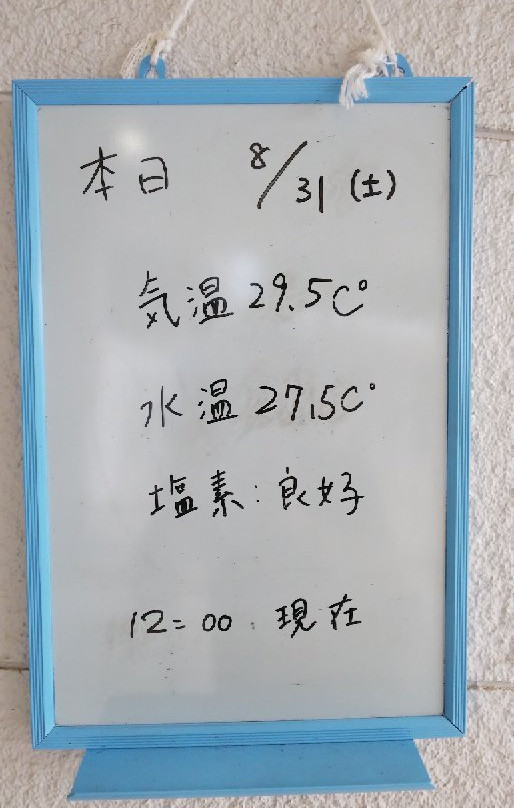 本日 8/31 (土)
気温 29.5C°
水温 27.5C°
塩素:良好
12=00 現在